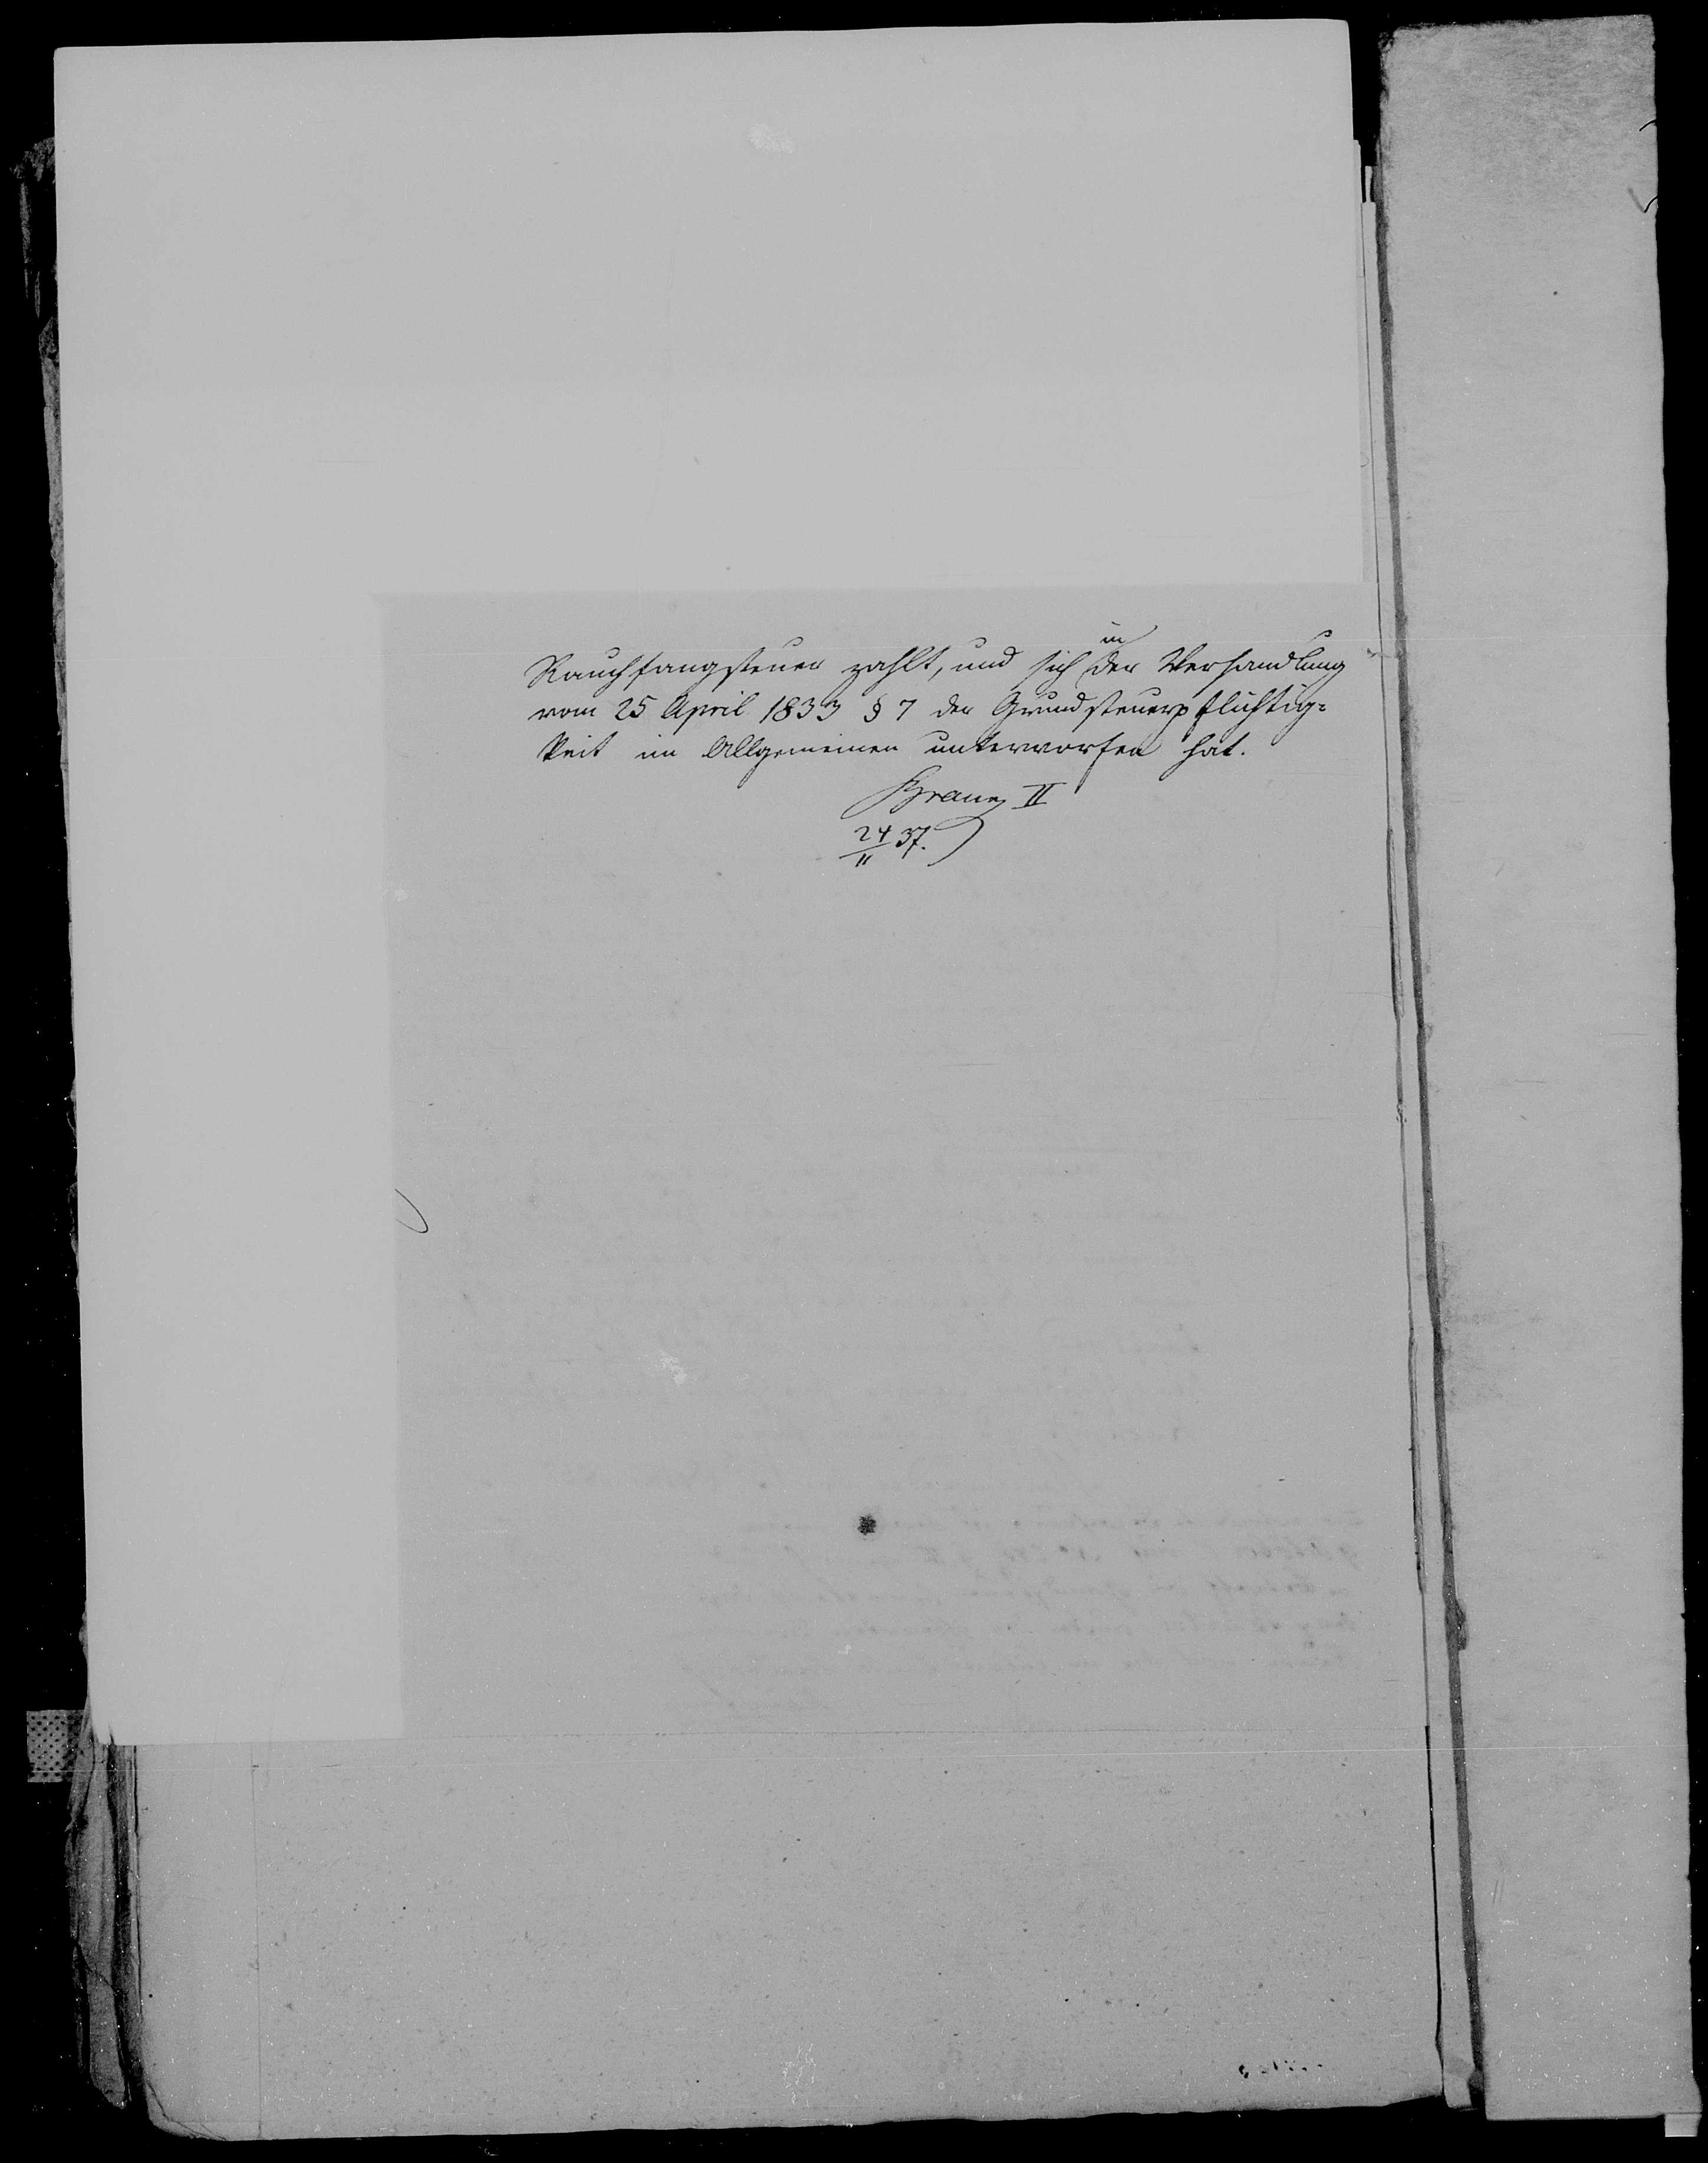 Rauchfangsteuer zahlt, und sich in der Verhandlung
vom 25 April 1833 § 7 der Grundsteuerpflichtig=
keit im Allgemeinen unterworfen hat.
II
24/11 37.